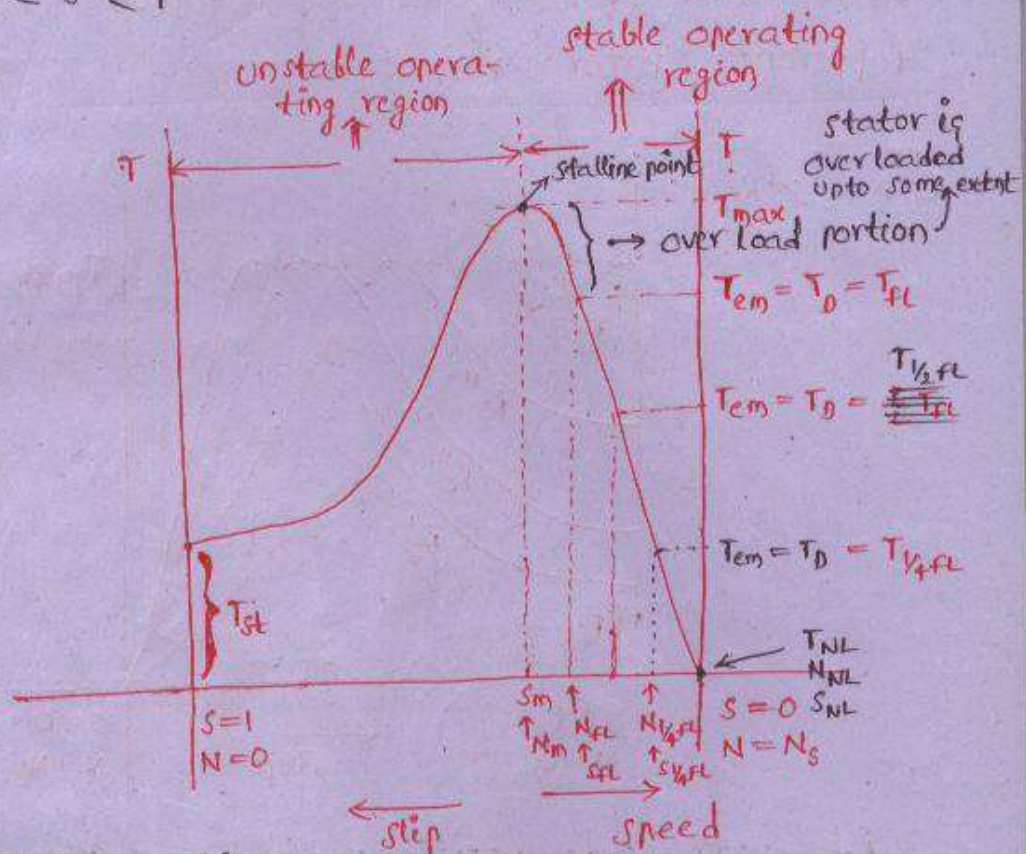 unstable opera-
ting region
stable operating
region
T
T
stalline point
stator is
overloaded
upto some extnt
Tmax
→ over load portion
Tem = TD = TfL
Tem = TD = T1/2 fL
Tem = TD = T1/4 fL
Tst
TNL
NNL
SNL
S=1
N=0
Sm
Nm
NfL
SfL
N1/4 fL
S1/4 fL
S=0
N=NS
slip
speed